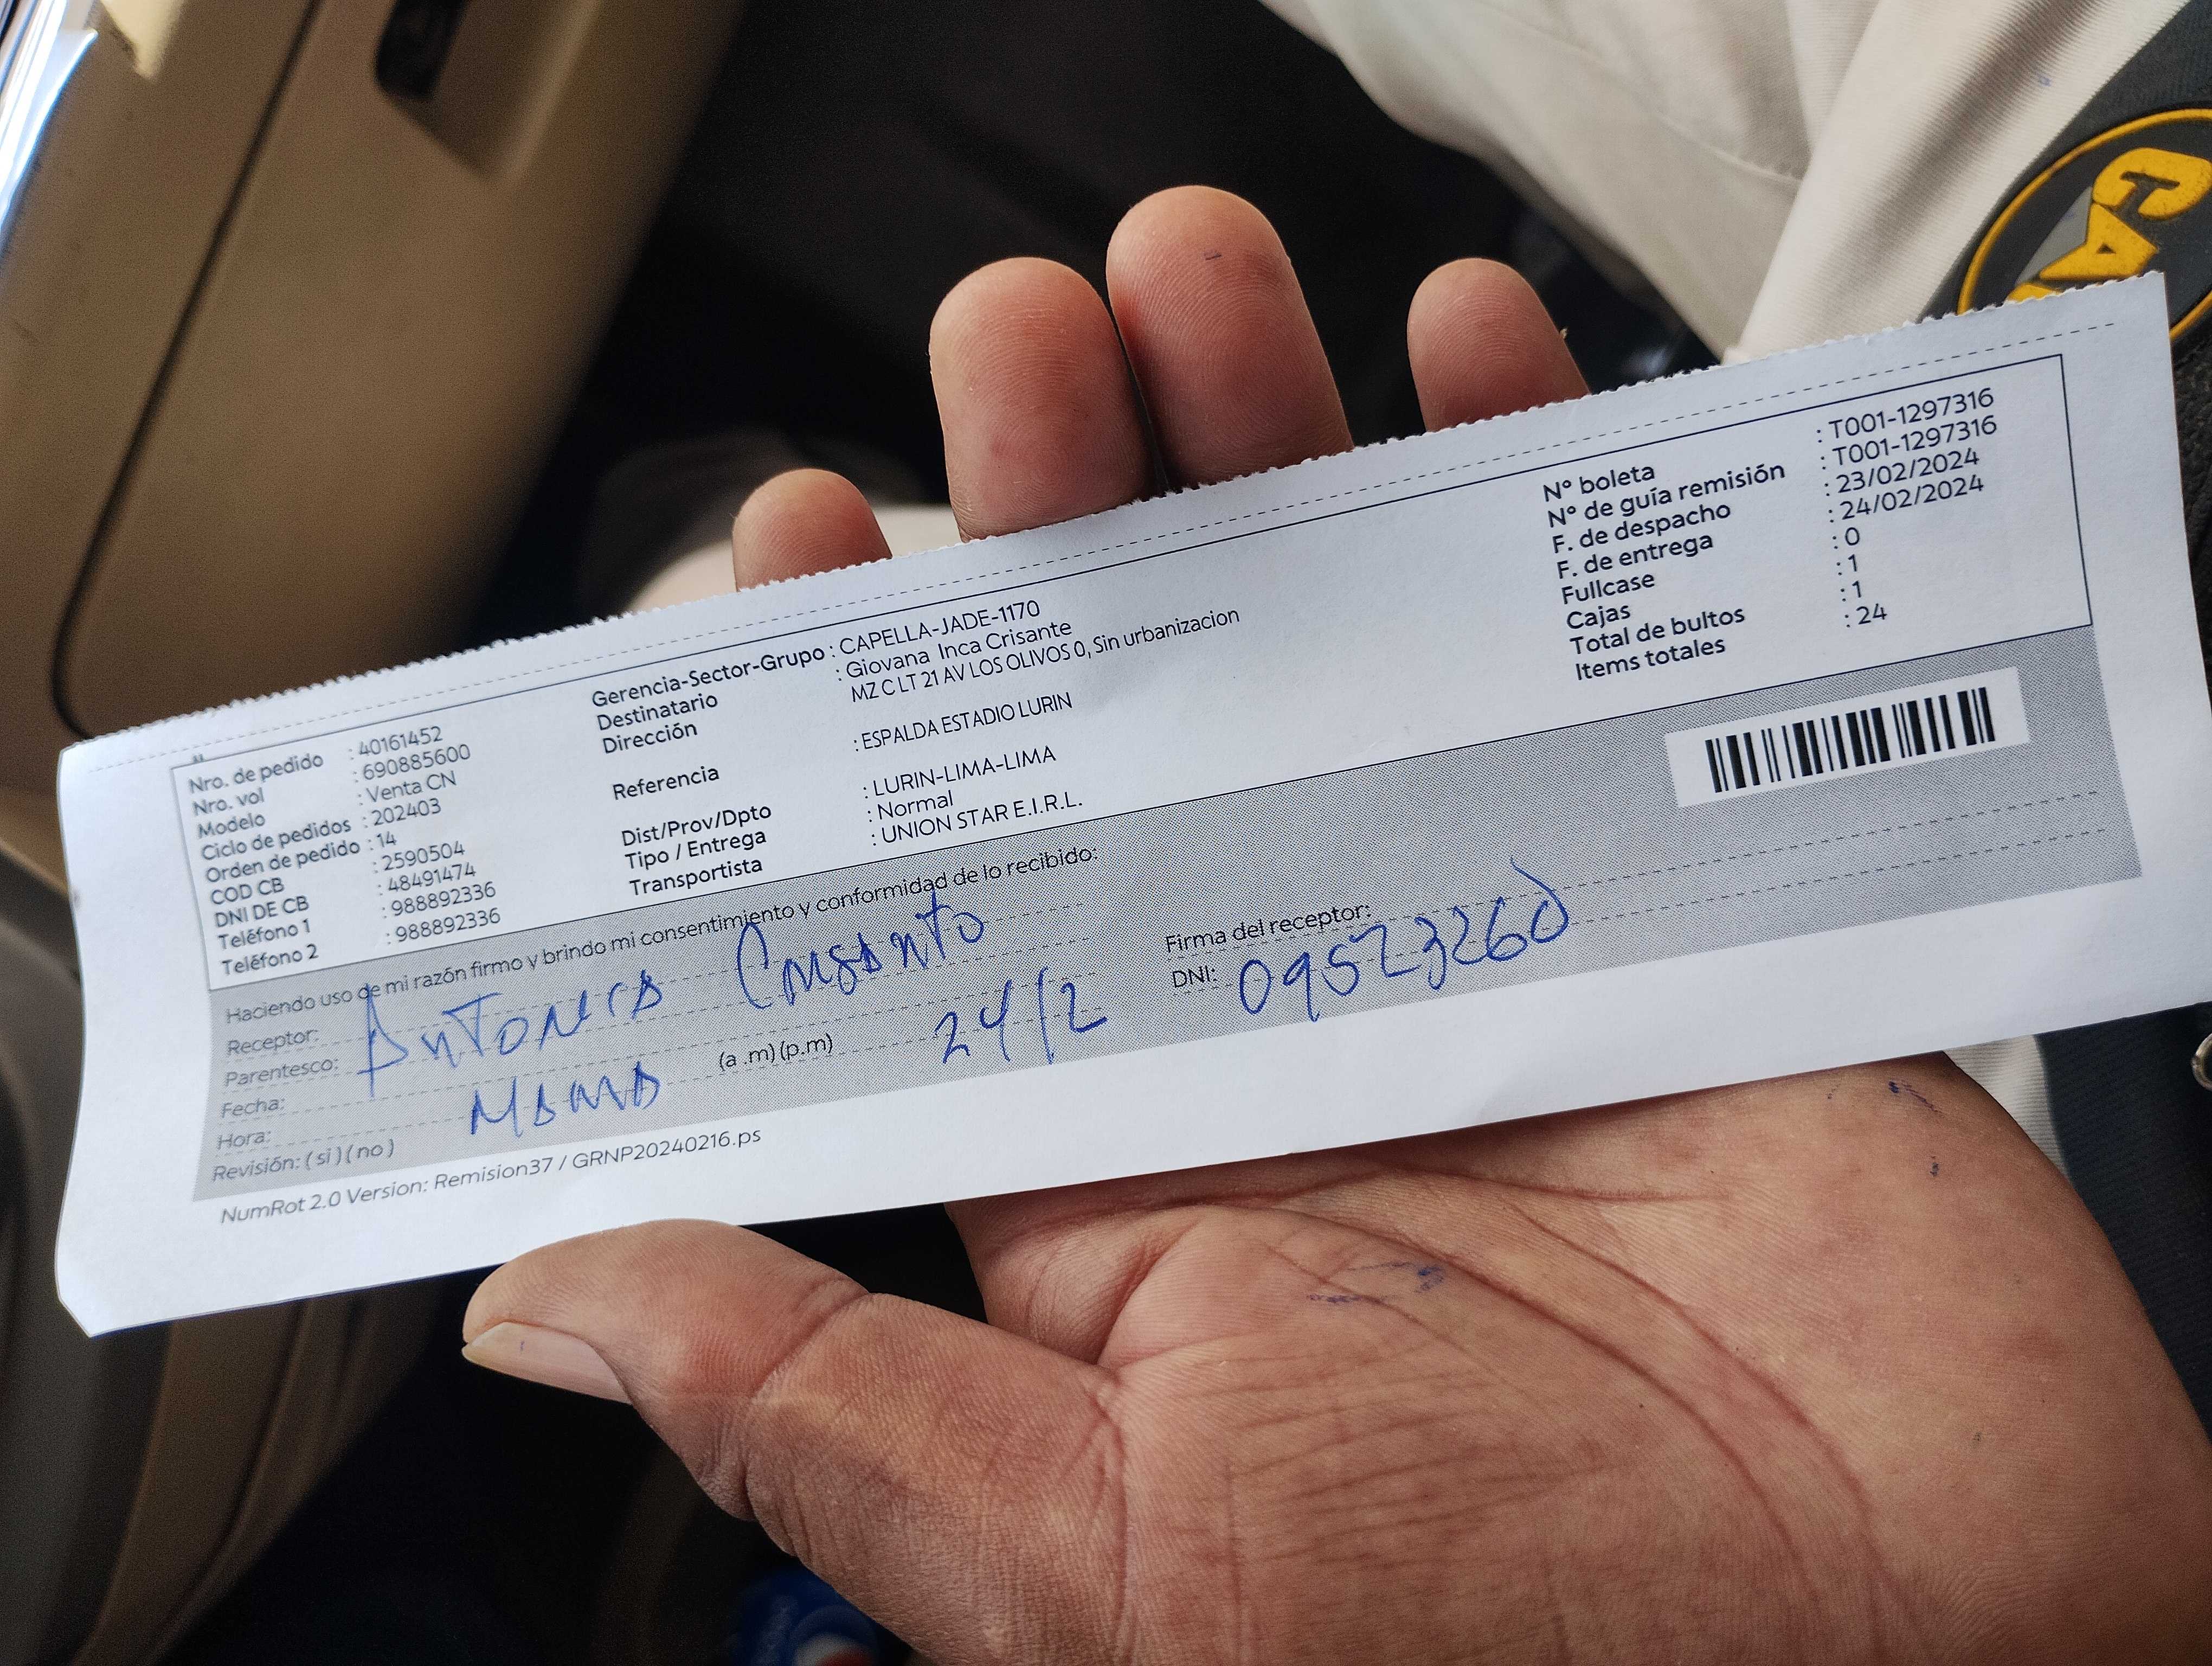 Nro. de pedido : 40161452
Nro. vol : 690885600
Modelo : Venta CN
Ciclo de pedidos : 202403
Orden de pedido : 14
COD CB : 2590504
DNI DE CB : 48491474
Teléfono 1 : 988892336
Teléfono 2 : 988892336
Gerencia-Sector-Grupo : CAPELLA-JADE-1170
Destinatario : Giovana Inca Crisante
Dirección MZ C LT 21 AV LOS OLIVOS 0, Sin urbanizacion
Referencia : ESPALDA ESTADIO LURIN
Dist/Prov/Dpto : LURIN-LIMA-LIMA
Tipo / Entrega : Normal
Transportista : UNION STAR E.I.R.L.
N° boleta : T001-1297316
N° de guía remisión : T001-1297316
F. de despacho : 23/02/2024
F. de entrega : 24/02/2024
Fullcase : 0
Cajas : 1
Total de bultos : 1
Items totales : 24
Haciendo uso de mi razón firmo y brindo mi consentimiento y conformidad de lo recibido:
Receptor:
Parentesco:
Fecha: 24/2
Hora: (a .m) (p.m)
Revisión: ( si ) ( no )
Firma del receptor:
DNI: 09523260
NumRot 2.0 Version: Remision37 / GRNP20240216.ps
CA